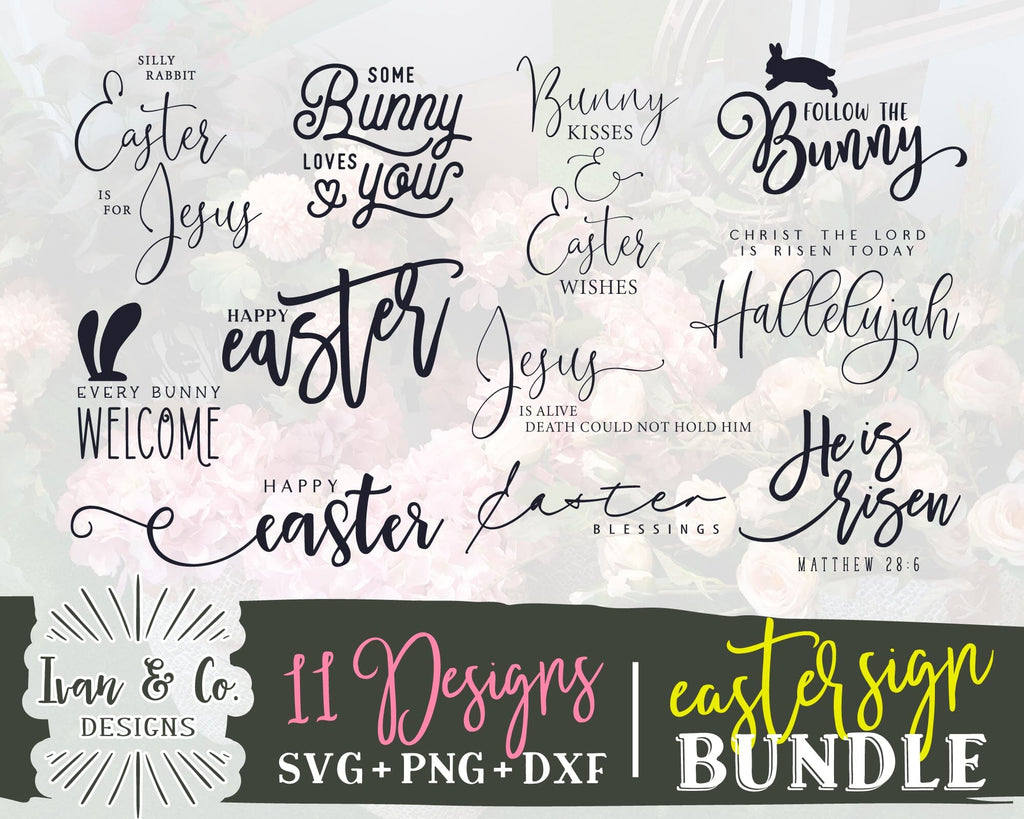 SILLY
RABBIT
Easter
IS
FOR
Jesus
SOME
Bunny
LOVES
you
Bunny
KISSES
&
Easter
WISHES
FOLLOW THE
Bunny
CHRIST THE LORD
IS RISEN TODAY
Hallelujah
EVERY BUNNY
WELCOME
HAPPY
easter
Jesus
IS ALIVE
DEATH COULD NOT HOLD HIM
He is
risen
MATTHEW 28:6
HAPPY
easter
Easter
BLESSINGS
Ivan & Co.
DESIGNS
11 Designs
SVG+PNG+DXF
easter sign
BUNDLE